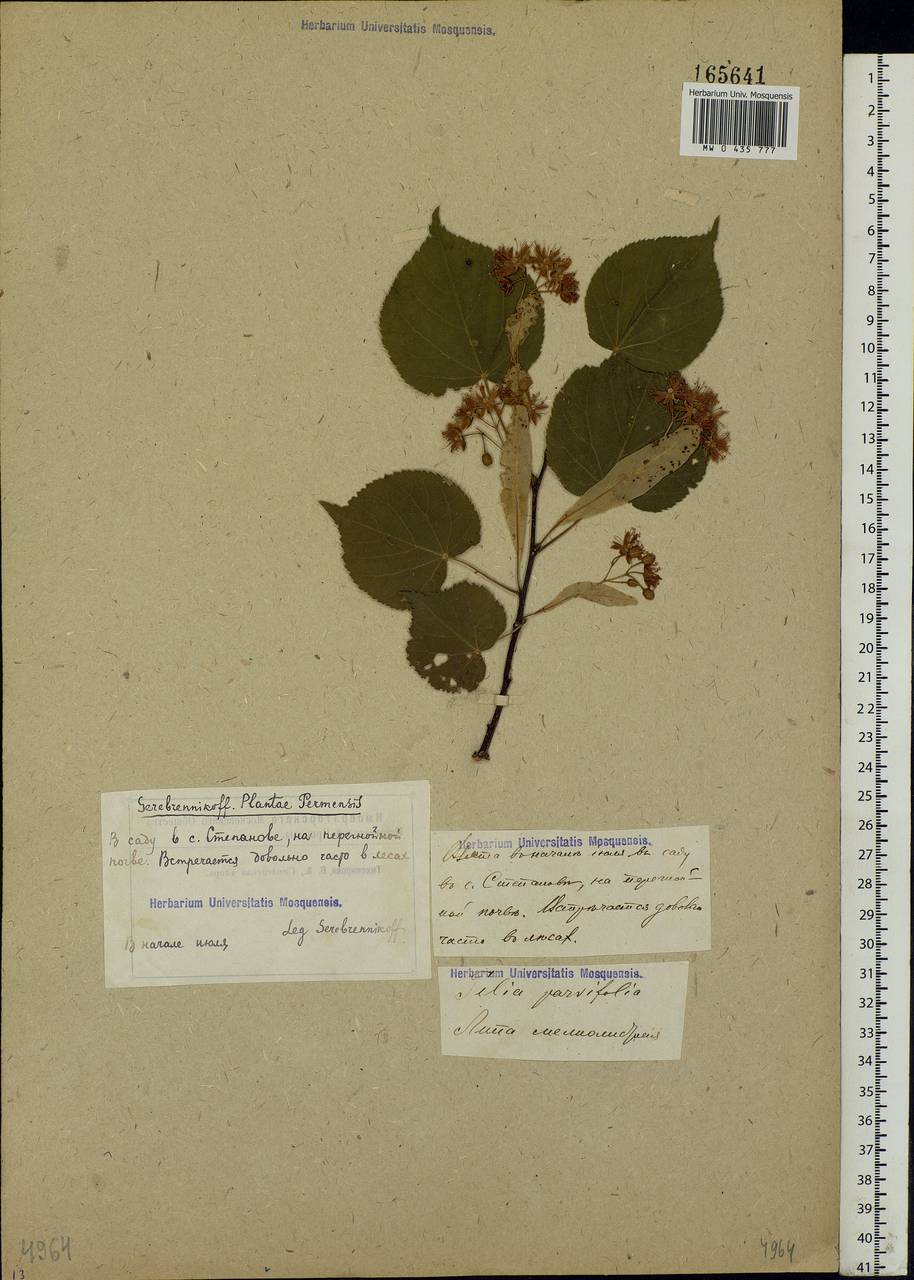 Herbarium Universitatis Mosquensis.
165641
Herbarium Univ. Mosquensis
MW 0 435 777
Serebrennikoff. Plantae Permensis
В саду в с. Степанове, на перегнойной
почве. Встречается довольно часто в лесах
Herbarium Universitatis Mosquensis.
Leg Serebrennikoff
В начале июля
Herbarium Universitatis Mosquensis.
въ началѣ июля, въ саду
въ с. Степановѣ, на перегной-
ной почвѣ. Встрѣчается довольно
часто въ лѣсах.
Herbarium Universitatis Mosquensis.
Tilia parvifolia
Липа мелколистная
4964
4964
13
1
2
3
4
5
6
7
8
9
10
11
12
13
14
15
16
17
18
19
20
21
22
23
24
25
26
27
28
29
30
31
32
33
34
35
36
37
38
39
40
41